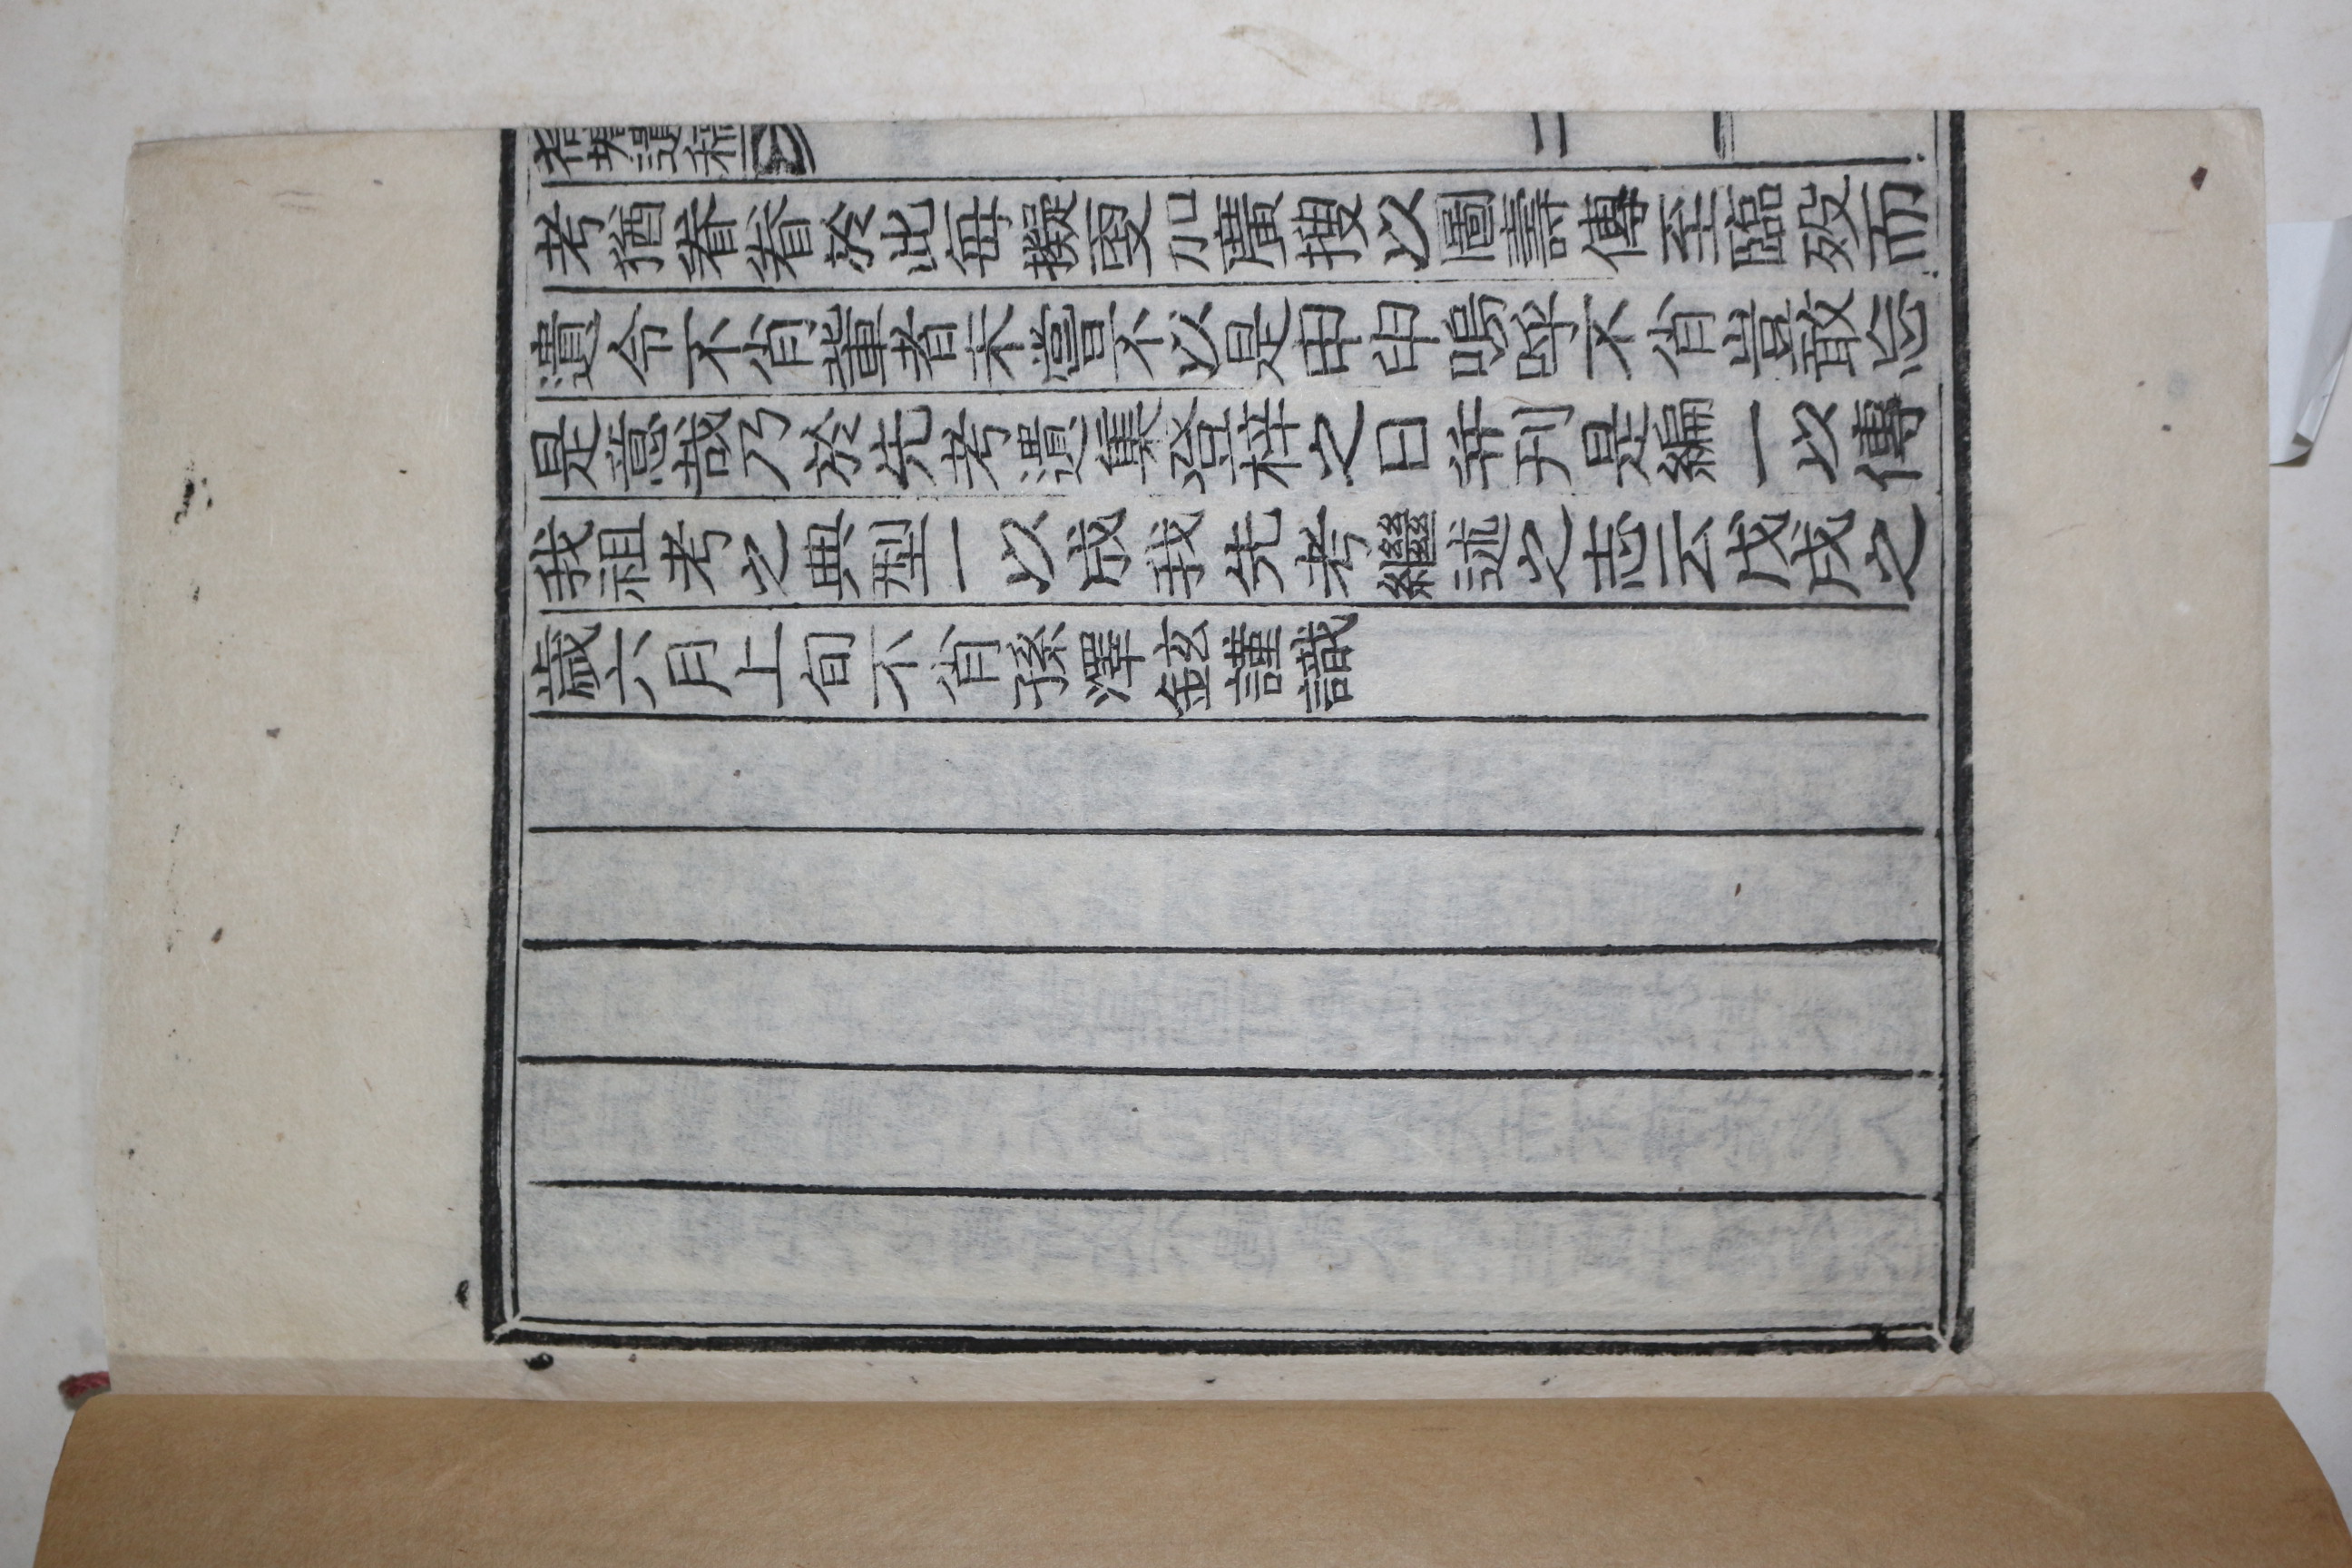 塘遺稿
二
考猶眷眷於此每擬更加廣搜以圖壽傳至臨歿而
遺令不肖輩者未嘗不以是申申嗚呼不肖豈敢忘
是意哉乃於先考遺集登梓之日并刊是編一以傳
我祖考之典型一以成我先考繼述之志云戊戌之
歲六月上旬不肖孫澤鉉謹識